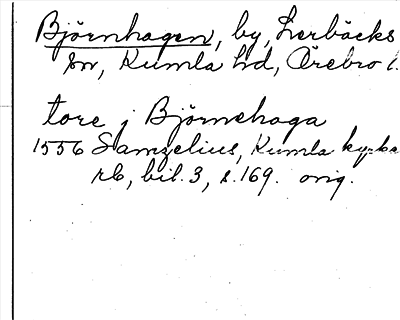 Björnhagen, by, Lerbäcks
sn, Kumla hd, Örebro l.
tore j Björnehaga
1556 Samzelius, Kumla
rb, bil. 3, s. 169. orig.